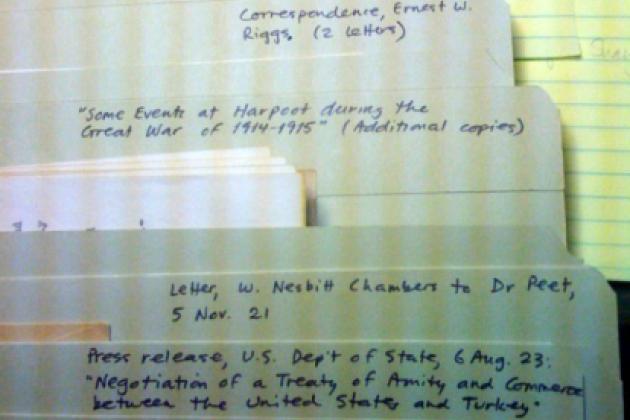 Correspondence, Ernest W.
Riggs. (2 letters)
"Some Events at Harpoot during the
Great War of 1914-1915" (Additional copies)
Letter, W. Nesbitt Chambers to Dr Peet,
5 Nov. 21
Press release, U.S. Dep't of State, 6 Aug. 23:
"Negotiation of a Treaty of Amity and Commerce
between the United States and Turkey"